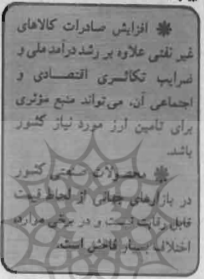 ✱ افزایش صادرات کالاهای
غیر نفتی علاوه بر رشد درآمد ملی و
ضرایب تکاثری اقتصادی و
اجتماعی آن، می‌تواند منبع مؤثری
برای تامین ارز مورد نیاز کشور
باشد.
✱ محصولات صنعتی کشور
در بازارهای جهانی از لحاظ قیمت
قابل رقابت نیست و در برخی موارد،
اختلاف بسیار فاحش است.